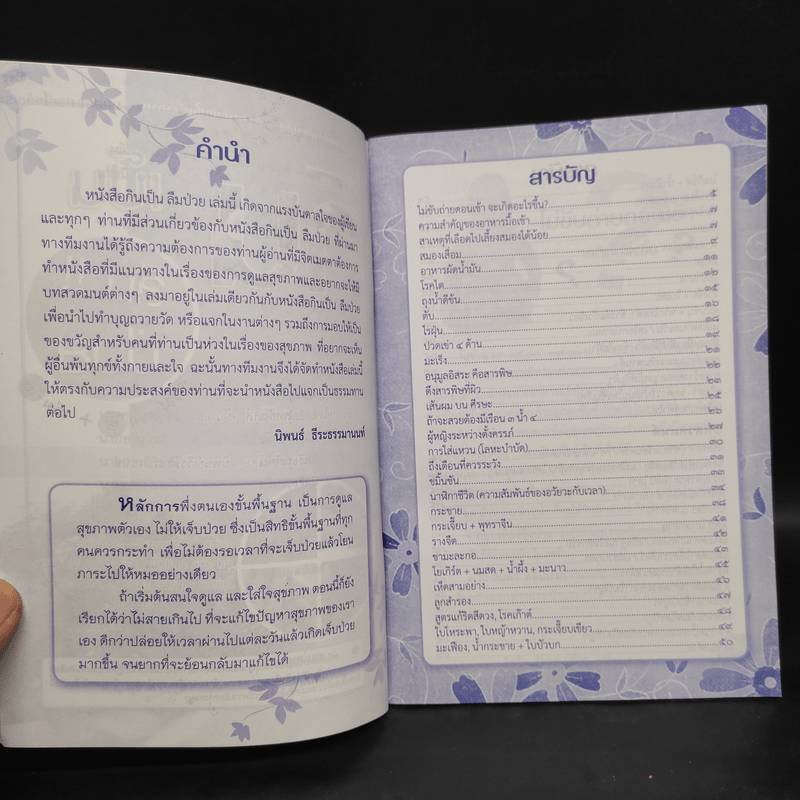 คำนำ
หนังสือกินเป็น ลืมป่วย เล่มนี้ เกิดจากแรงบันดาลใจของผู้เขียน
และทุกๆ ท่านที่มีส่วนเกี่ยวข้องกับหนังสือกินเป็น ลืมป่วย ที่ผ่านมา
ทางทีมงานได้รู้ถึงความต้องการของท่านผู้อ่านที่มีจิตเมตตาต้องการ
ทำหนังสือที่มีแนวทางในเรื่องของการดูแลสุขภาพและอยากจะให้มี
บทสวดมนต์ต่างๆ ลงมาอยู่ในเล่มเดียวกันกับหนังสือกินเป็น ลืมป่วย
เพื่อนำไปทำบุญถวายวัด หรือแจกในงานต่างๆ รวมถึงการมอบให้เป็น
ของขวัญสำหรับคนที่ท่านเป็นห่วงในเรื่องของสุขภาพ ที่อยากจะเห็น
ผู้อื่นพ้นทุกข์ทั้งกายและใจ ฉะนั้นทางทีมงานจึงได้จัดทำหนังสือเล่มนี้
ให้ตรงกับความประสงค์ของท่านที่จะนำหนังสือไปแจกเป็นธรรมทาน
ต่อไป
นิพนธ์ ธีระธรรมานนท์
หลักการพึ่งตนเองขั้นพื้นฐาน เป็นการดูแล
สุขภาพตัวเอง ไม่ให้เจ็บป่วย ซึ่งเป็นสิทธิขั้นพื้นฐานที่ทุก
คนควรกระทำ เพื่อไม่ต้องรอเวลาที่จะเจ็บป่วยแล้วโยน
ภาระไปให้หมออย่างเดียว
ถ้าเริ่มต้นสนใจดูแล และใส่ใจสุขภาพ ตอนนี้ก็ยัง
เรียกได้ว่าไม่สายเกินไป ที่จะแก้ไขปัญหาสุขภาพของเรา
เอง ดีกว่าปล่อยให้เวลาผ่านไปแต่ละวันแล้วเกิดเจ็บป่วย
มากขึ้น จนยากที่จะย้อนกลับมาแก้ไขได้
สารบัญ
ไม่ขับถ่ายตอนเช้า จะเกิดอะไรขึ้น?...๕
ความสำคัญของอาหารมื้อเช้า...๗
สาเหตุที่เลือดไปเลี้ยงสมองได้น้อย...๗
สมองเสื่อม...๙
อาหารผัดน้ำมัน...๑๑
โรคไต...๑๒
ถุงน้ำดีข้น...๑๕
ตับ...๑๖
ไรฝุ่น...๑๘
ปวดเข่า ๔ ด้าน...๑๙
มะเร็ง...๒๑
อนุมูลอิสระ คือสารพิษ...๒๒
ดึงสารพิษที่ผิว...๒๓
เส้นผม บน ศีรษะ...๒๕
ถ้าจะสวยต้องมีเรือน ๓ น้ำ ๔...๒๖
ผู้หญิงระหว่างตั้งครรภ์...๒๗
การใส่แหวน (โลหะบำบัด)...๓๐
ถึงเดือนที่ควรระวัง...๓๑
ขมิ้นชัน...๓๓
นาฬิกาชีวิต (ความสัมพันธ์ของอวัยวะกับเวลา)...๓๔
กระชาย...๓๘
กระเจี๊ยบ + พุทราจีน...๔๑
รางจืด...๔๒
ชามะละกอ...๔๓
โยเกิร์ต + นมสด + น้ำผึ้ง + มะนาว...๔๕
เห็ดสามอย่าง...๔๖
ลูกสำรอง...๔๗
สูตรแก้ริดสีดวง, โรคเก๊าต์...๔๘
ใบโหระพา, ใบหญ้าหวาน, กระเจี๊ยบเขียว...๔๙
มะเฟือง, น้ำกระชาย + ใบบัวบก...๕๐